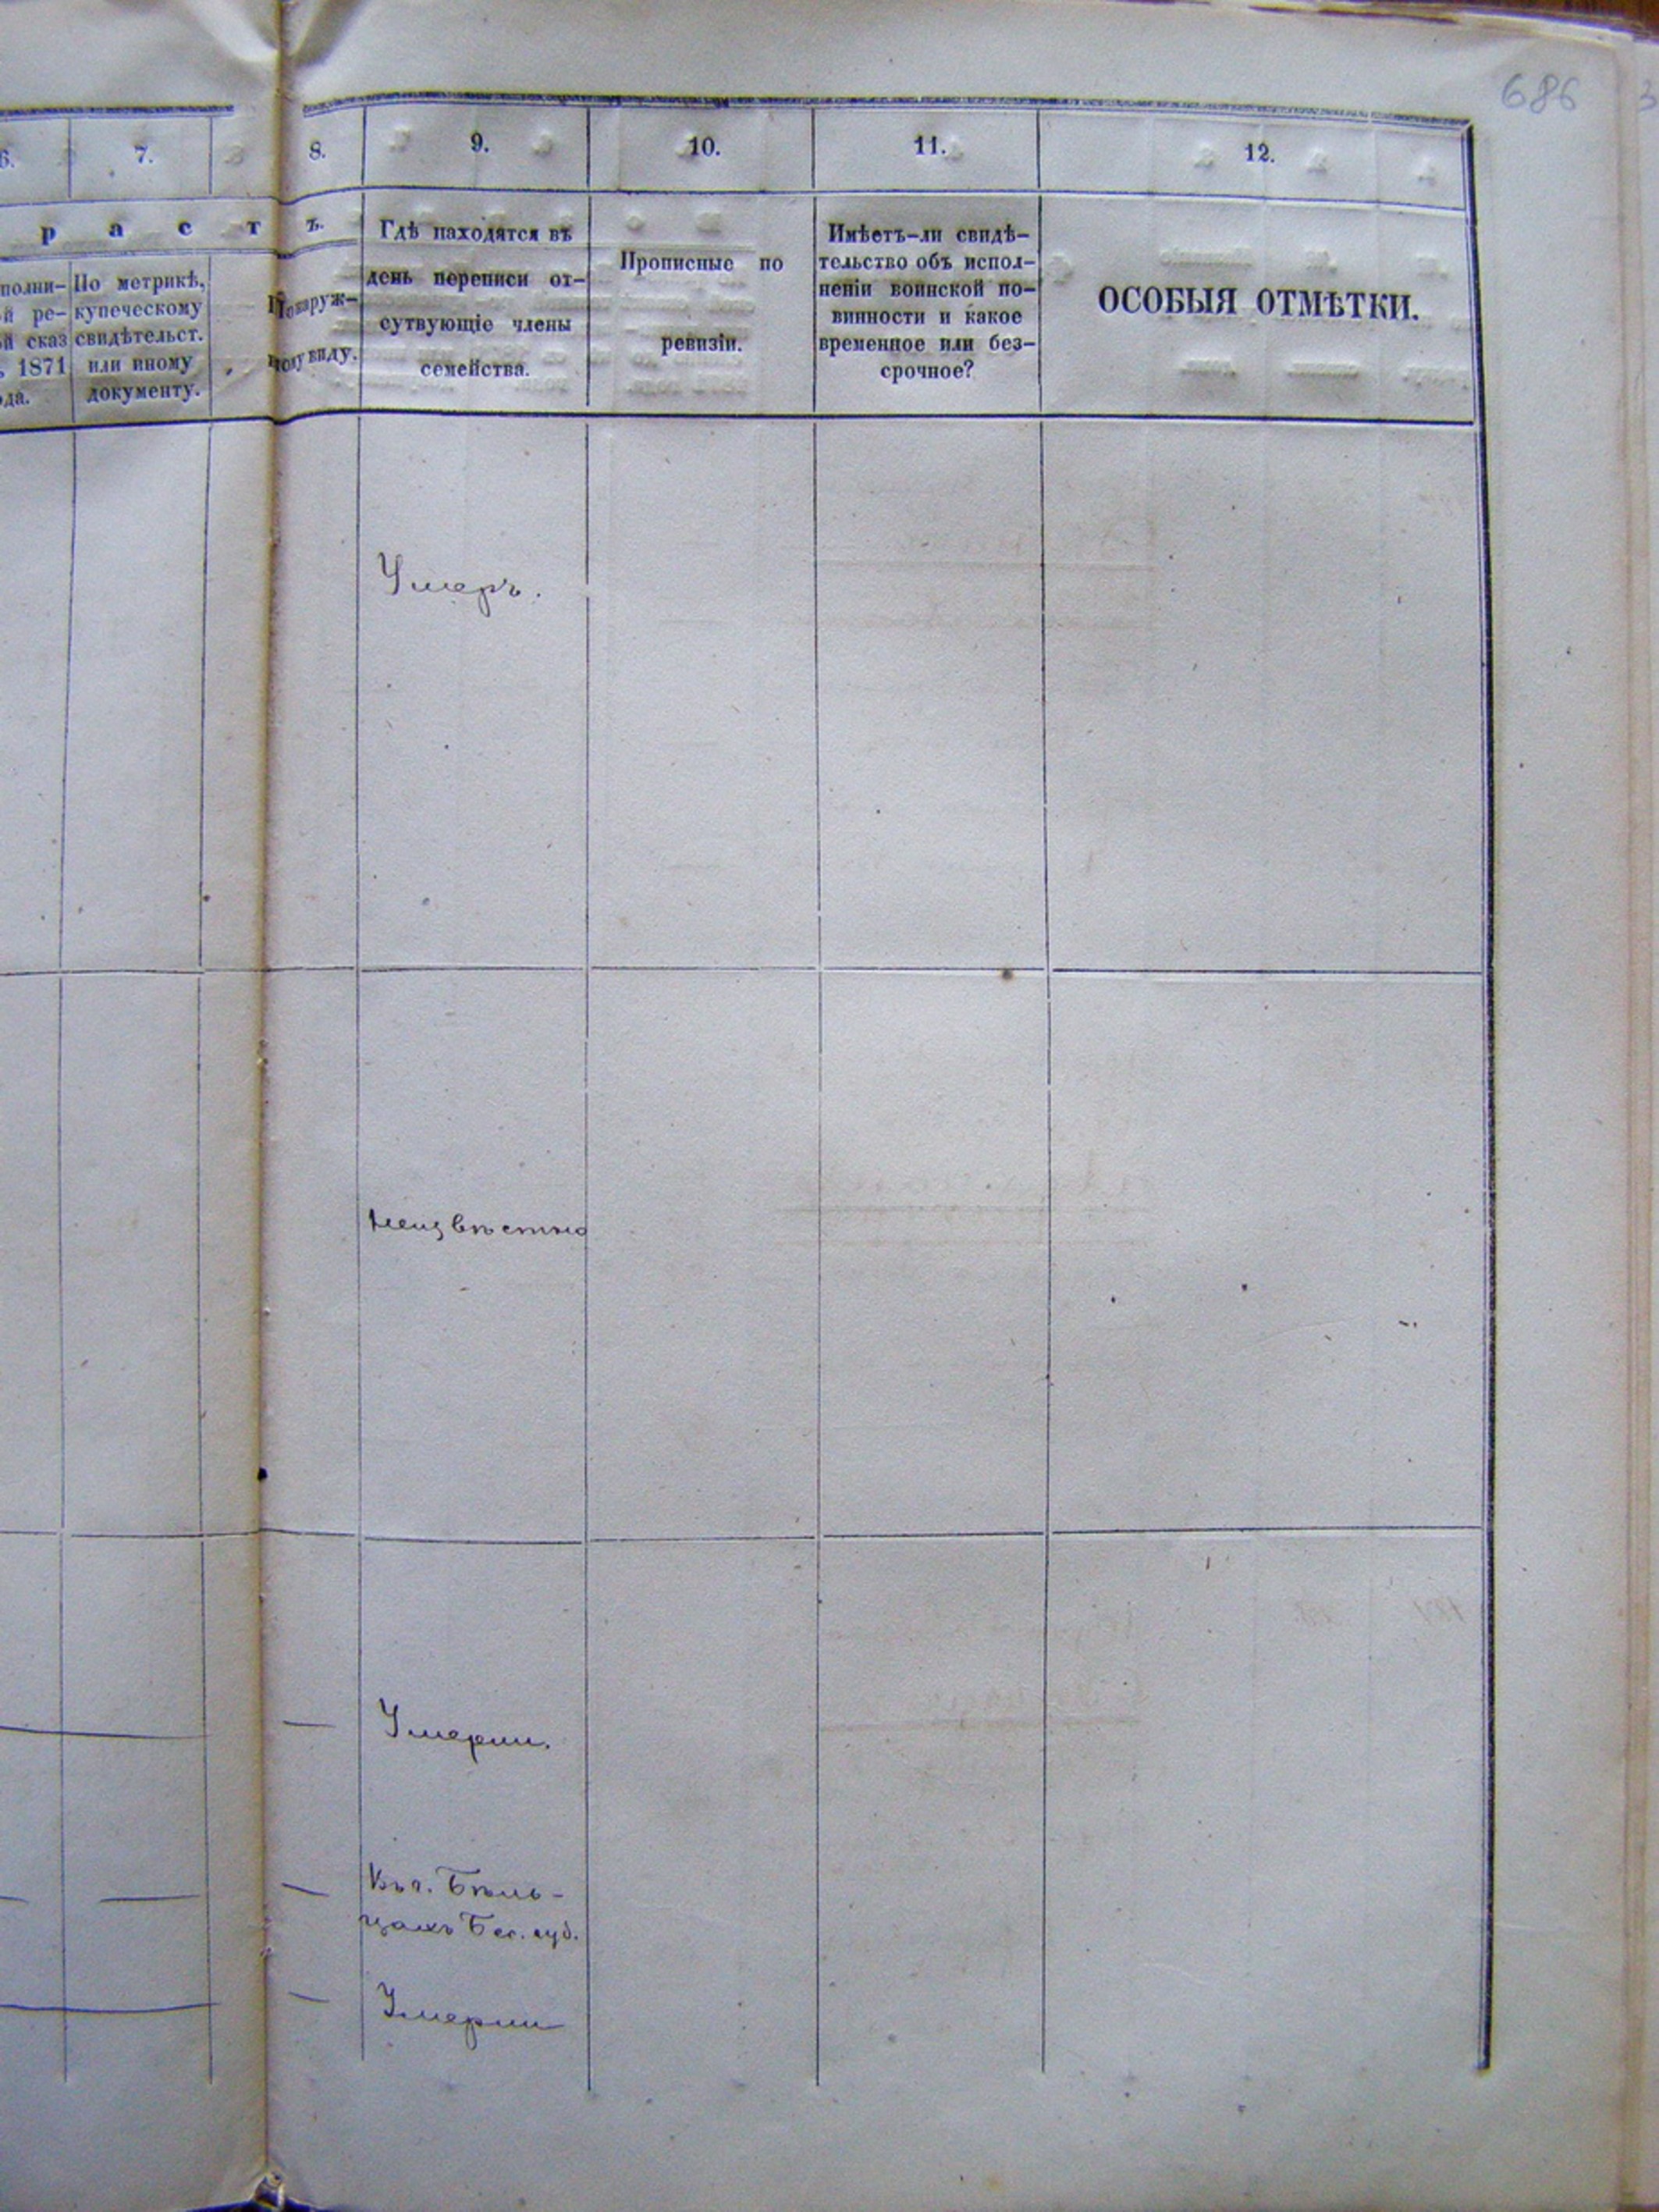 686
6. 7. 8. 9. 10. 11. 12.
р а с т ъ.
полни-
й ре-
й сказ
1871
да.
По метрикѣ,
купеческому
свидѣтельст.
или иному
документу.
По наруж-
ному виду.
Гдѣ находятся въ
день переписи от-
сутвующіе члены
семейства.
Прописные по
ревизіи.
Имѣетъ-ли свидѣ-
тельство объ испол-
неніи воинской по-
винности и какое
временное или без-
срочное?
ОСОБЫЯ ОТМѢТКИ.
Умеръ.
Неизвѣстно
Умерли.
Въ г. Бѣль-
цахъ Бес. губ.
Умерли